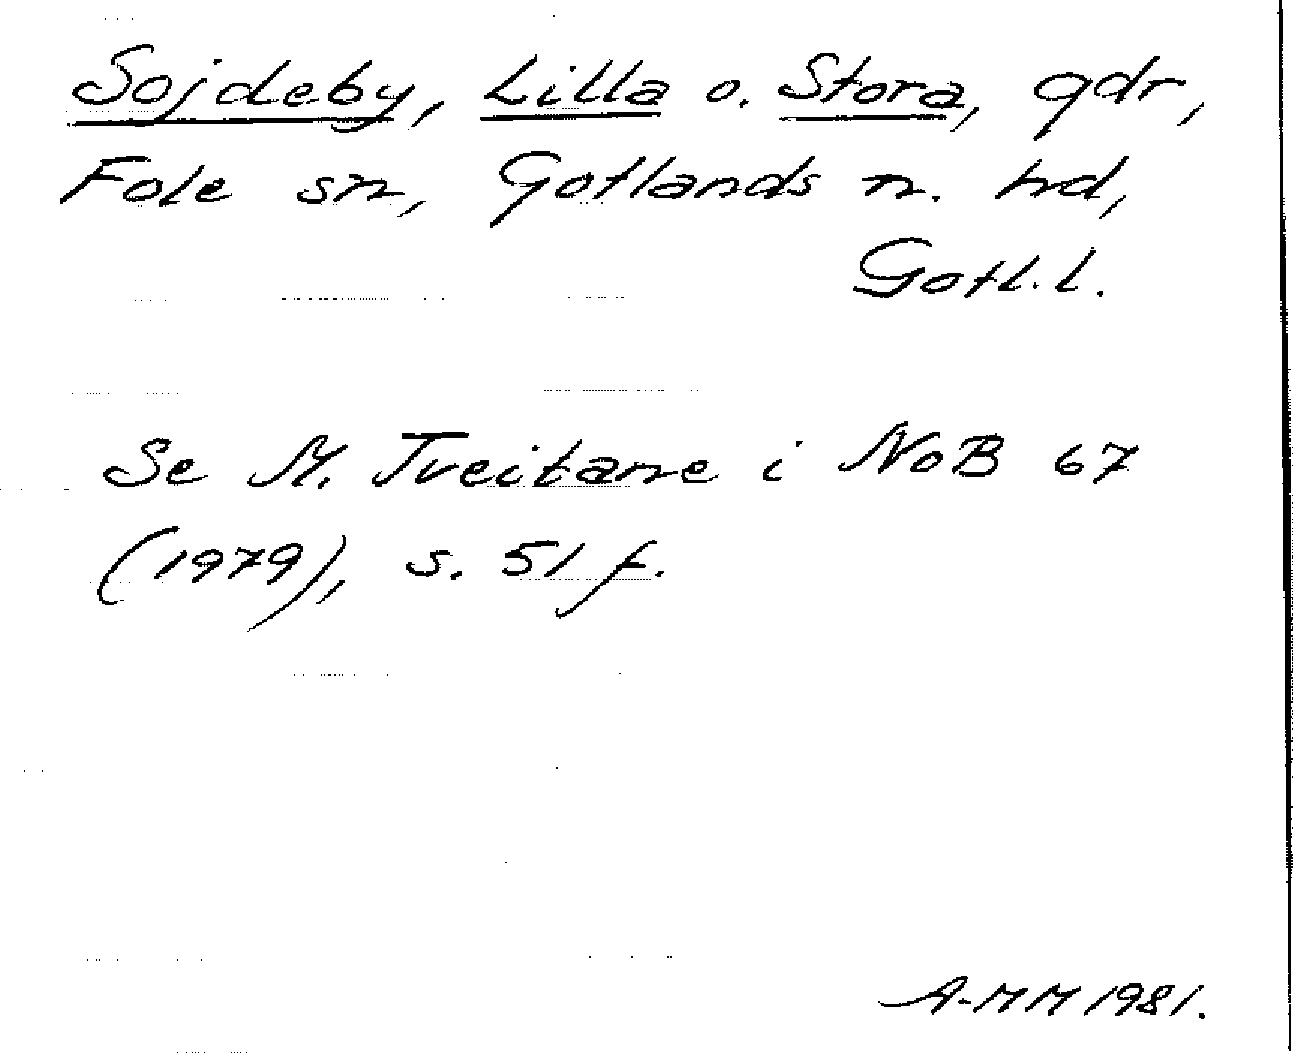 Sojdeby, Lilla o. Stora, gdr,
Fole sn, Gotlands n. hd,
Gotl.l.
Se M. Tveitane i NoB 67
(1979), s. 51 f.
A-MM 1981.